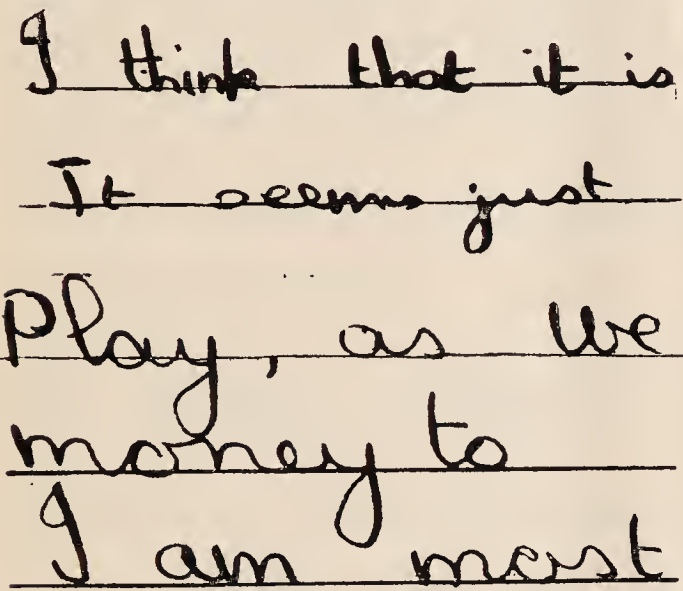 I think that it is
It seems just
Play, as we
money to
I am most